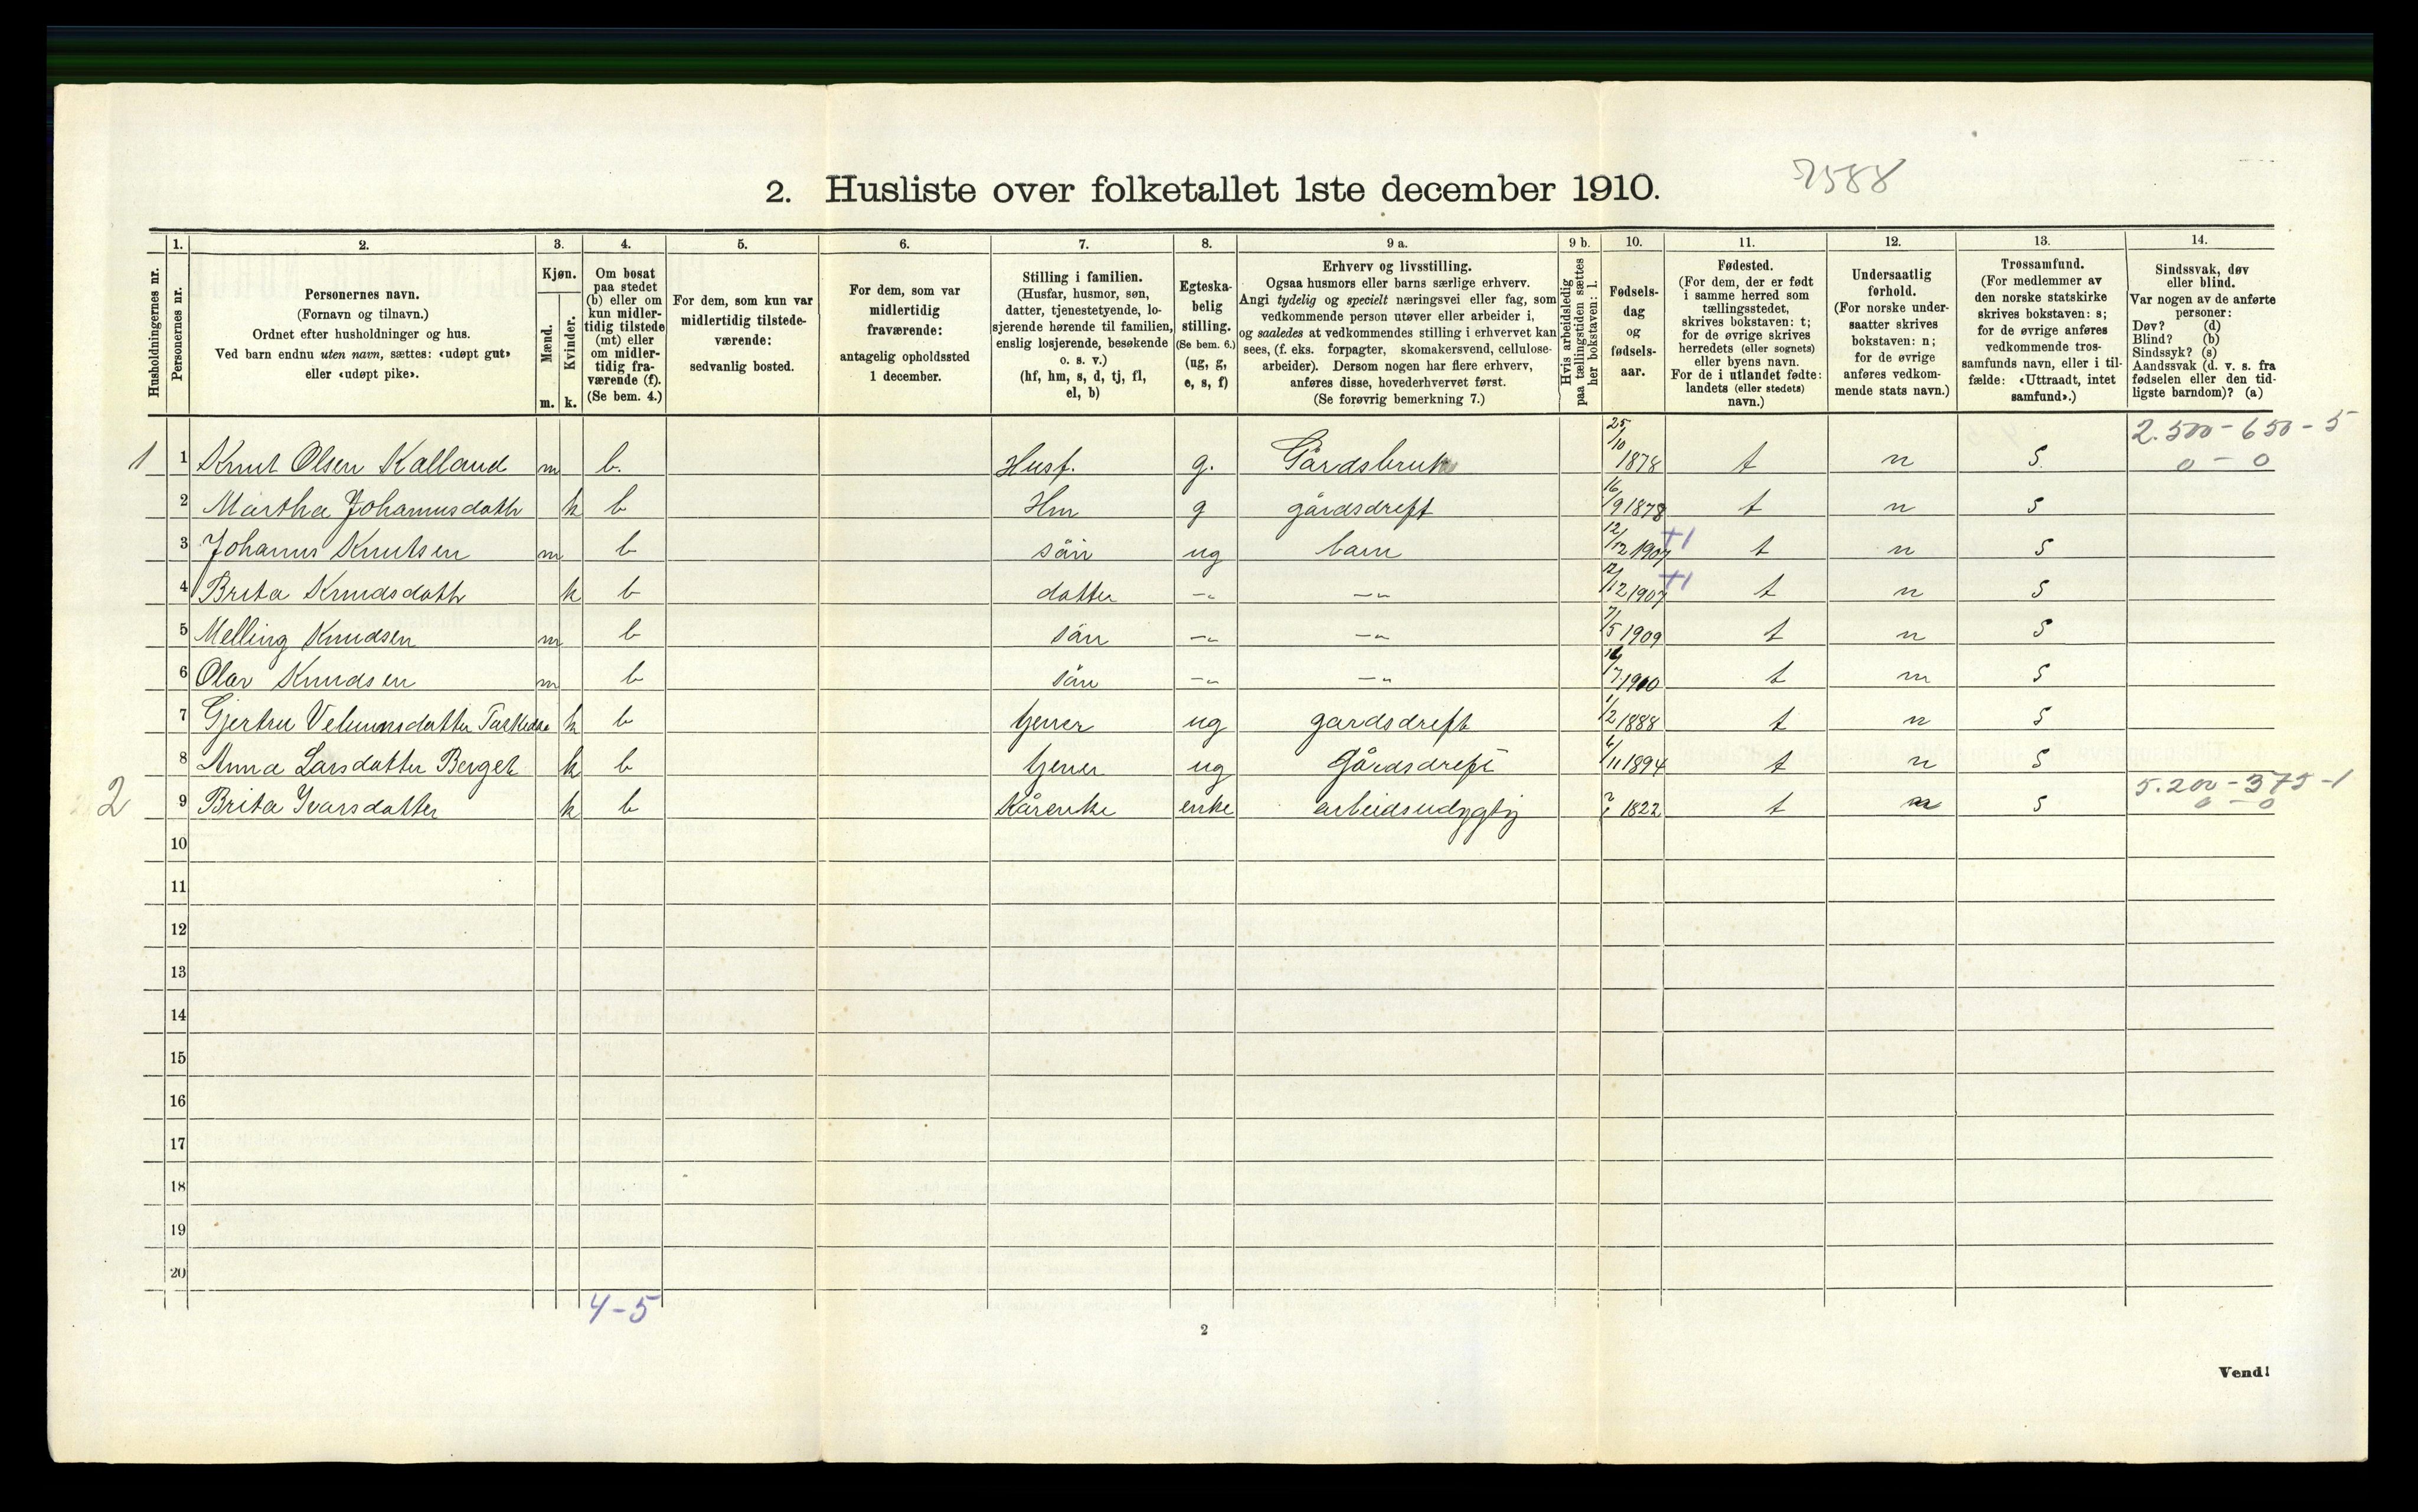 2. Husliste over folketallet 1ste december 1910.
7588
Husholdningernes nr.
1.
Personernes nr.
2.
Personernes navn.
(Fornavn og tilnavn.)
Ordnet efter husholdninger og hus.
Ved barn endnu uten navn, sættes: «udøpt gut»
eller «udøpt pike».
3.
Kjøn.
Mænd.
Kvinder.
m. k.
4.
Om bosat
paa stedet
(b) eller om
kun midler-
tidig tilstede
(mt) eller
om midler-
tidig fra-
værende (f).
(Se bem. 4.)
5.
For dem, som kun var
midlertidig tilstede-
værende:
sedvanlig bosted.
6.
For dem, som var
midlertidig
fraværende:
antagelig opholdssted
1 december.
7.
Stilling i familien.
(Husfar, husmor, søn,
datter, tjenestetyende, lo-
sjerende hørende til familien,
enslig losjerende, besøkende
o. s. v.)
(hf, hm, s, d, tj, fl,
el, b)
8.
Egteska-
belig
stilling.
(Se bem. 6.)
(ug, g,
e, s, f)
9 a.
Erhverv og livsstilling.
Ogsaa husmors eller barns særlige erhverv.
Angi tydelig og specielt næringsvei eller fag, som
vedkommende person utøver eller arbeider i,
og saaledes at vedkommendes stilling i erhvervet kan
sees, (f. eks. forpagter, skomakersvend, cellulose-
arbeider). Dersom nogen har flere erhverv,
anføres disse, hovederhvervet først.
(Se forøvrig bemerkning 7.)
9 b.
Hvis arbeidsledig
paa tællingstiden sættes
her bokstaven: l.
10.
Fødsels-
dag
og
fødsels-
aar.
11.
Fødested.
(For dem, der er født
i samme herred som
tællingsstedet,
skrives bokstaven: t;
for de øvrige skrives
herredets (eller sognets)
eller byens navn.
For de i utlandet fødte:
landets (eller stedets)
navn.)
12.
Undersaatlig
forhold.
(For norske under-
saatter skrives
bokstaven: n;
for de øvrige
anføres vedkom-
mende stats navn.)
13.
Trossamfund.
(For medlemmer av
den norske statskirke
skrives bokstaven: s;
for de øvrige anføres
vedkommende tros-
samfunds navn, eller i til-
fælde: «Uttraadt, intet
samfund».)
14.
Sindssvak, døv
eller blind.
Var nogen av de anførte
personer:
Døv? (d)
Blind? (b)
Sindssyk? (s)
Aandssvak (d. v. s. fra
fødselen eller den tid-
ligste barndom)? (a)
1 1 Knut Olsen Kalland m b. Husf. g. Gårdsbruk 25/10 1878 t n S. 2.500-650-5 0-0
2 Martha Johannusdatt k b Hm g gårdsdreft 16/9 1878 t n S
3 Johanns Knutsen m b sön ug barn 12/12 1907 +1 t n S
4 Brita Knudsdatt k b datter -"- -"- 12/12 1907 +1 t n S
5 Melling Knudsen m b sön -"- -"- 7/5 1909 t n S
6 Olav Knudsen m b sön -"- -"- 16/7 1910 t n S
7 Gjertru Velumsdatter k b tjener ug gardsdreft 1/2 1888 t n S
8 Anna Larsdatter Berget k b tjener ug Gårdsdreft 4/11 1894 t n S
2 9 Brita Ivarsdatter k b Kårenke enke arbeidsudygtig ? 1822 t n S 5.200-375-1 0-0
10
11
12
13
14
15
16
17
18
19
20
4-5
2
Vend!